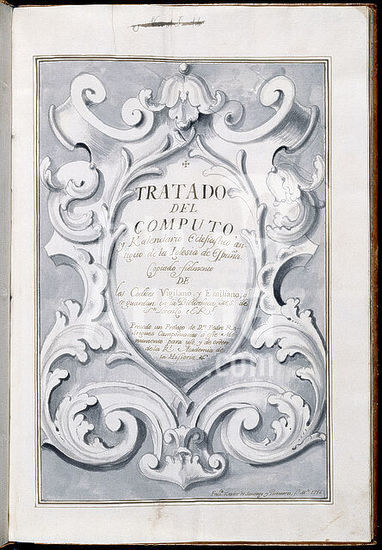 TRATADO
DEL
COMPUTO,
y Kalendario Eclesiastico an
tiguo de la Iglesia de España.
Copiado fielmente
DE
los Codices Vigilano, y Emiliano, q.
se guardan en la Biblioteca de S.
Lorenzo el R.l
Precede un Prologo de D.n Pedro Ro
driguez Campomanes a este Mo
numento para uso, y de orden
de la R.l Academia de
la Historia.
Palomares